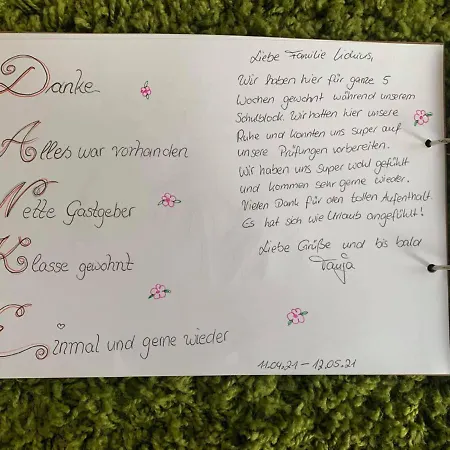 Danke
Alles war vorhanden
Nette Gastgeber
Klasse gewohnt
Einmal und gerne wieder
Liebe Familie
Wir haben hier für ganze 5
Wochen gewohnt während unserem
Schulblock. Wir hatten hier unsere
Ruhe und konnten uns super auf
unsere Prüfungen vorbereiten.
Wir haben uns super wohl gefühlt
und kommen sehr gerne wieder.
Vielen Dank für den tollen Aufenthalt.
Es hat sich wie Urlaub angefühlt!
Liebe Grüße und bis bald
Tanja
11.04.21 – 12.05.21